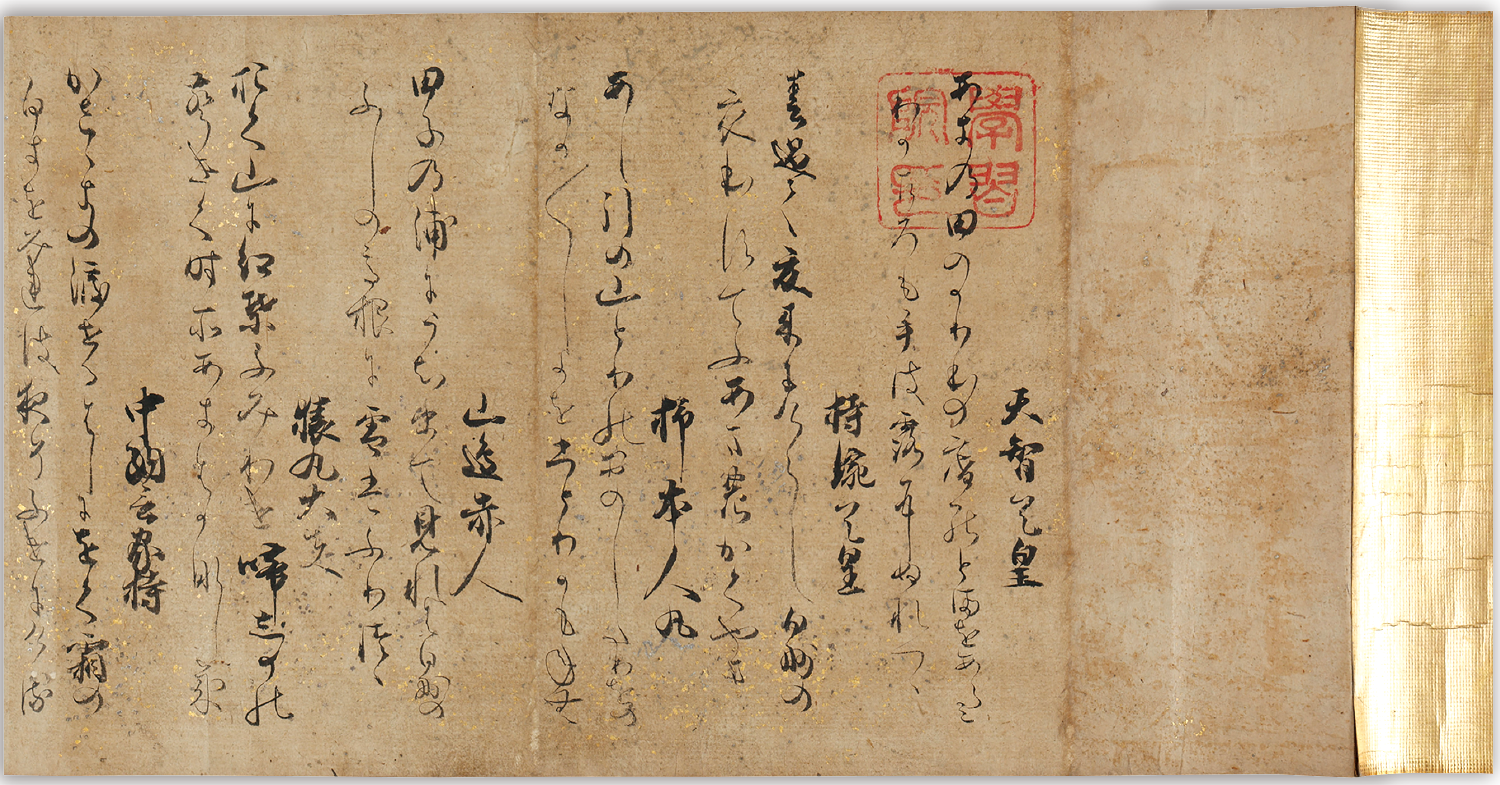 學習院印
天智天皇
あきの田のかりほの庵のとまをあらみ
わかころも手は露にぬれつゝ
持統天皇
春過て夏来にけらし白妙の
衣ほすてふあまのかくやま
柿本人丸
あし引の山とりの尾のしたりおの
なか〳〵しよをひとりかもねむ
山邊赤人
田子の浦にうち出て見れは白妙の
ふしの高根に雪はふりつゝ
猿丸大夫
おく山に紅葉ふみわけ啼しかの
声きく時そあきはかなしき
中納言家持
かさゝきの渡せるはしにをく霜の
白きを見れは夜そふけにける